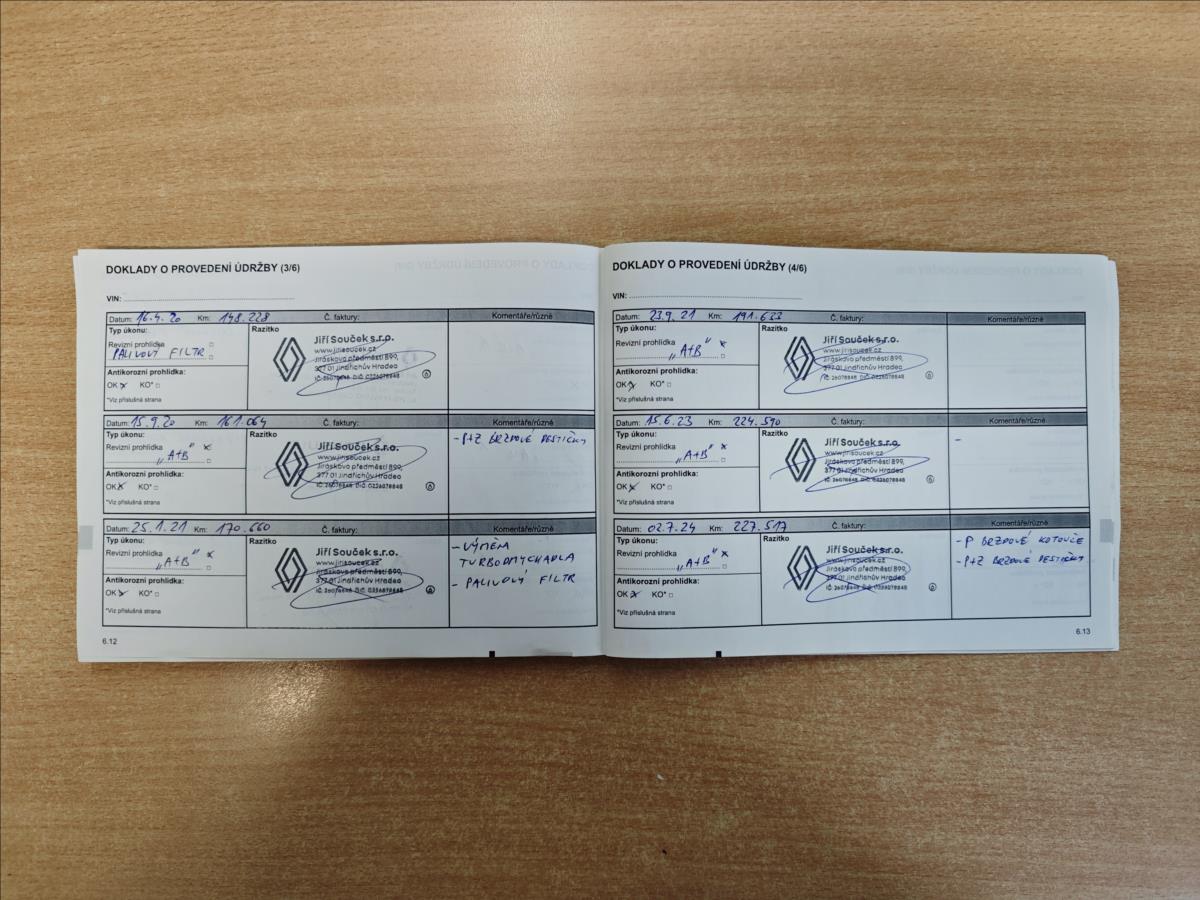 DOKLADY O PROVEDENÍ ÚDRŽBY (3/6)
VIN:
Datum: 16.4.20 Km: 148.228 Č. faktury: Komentáře/různé
Typ úkonu: Razítko
Revizní prohlídka
PALIVOVÝ FILTR
Antikorozní prohlídka:
OK KO*
*Viz příslušná strana
Jiří Souček s.r.o.
www.jirisoucek.cz
Jiráskovo předměstí 899,
377 01 Jindřichův Hradec
IČ: 26078848 DIČ: CZ26078848
Datum: 15.9.20 Km: 161.064 Č. faktury: Komentáře/různé
Typ úkonu: Razítko
Revizní prohlídka
"A+B"
Antikorozní prohlídka:
OK KO*
*Viz příslušná strana
Jiří Souček s.r.o.
www.jirisoucek.cz
Jiráskovo předměstí 899,
377 01 Jindřichův Hradec
IČ: 26078848 DIČ: CZ26078848
- P+Z BRZDOVÉ DESTIČKY
Datum: 25.1.21 Km: 170.660 Č. faktury: Komentáře/různé
Typ úkonu: Razítko
Revizní prohlídka
"A+B"
Antikorozní prohlídka:
OK KO*
*Viz příslušná strana
Jiří Souček s.r.o.
www.jirisoucek.cz
Jiráskovo předměstí 899,
377 01 Jindřichův Hradec
IČ: 26078848 DIČ: CZ26078848
- VÝMĚNA
TURBODMYCHADLA
- PALIVOVÝ FILTR
6.12
DOKLADY O PROVEDENÍ ÚDRŽBY (4/6)
VIN:
Datum: 23.9.21 Km: 191.633 Č. faktury: Komentáře/různé
Typ úkonu: Razítko
Revizní prohlídka
"A+B"
Antikorozní prohlídka:
OK KO*
*Viz příslušná strana
Jiří Souček s.r.o.
www.jirisoucek.cz
Jiráskovo předměstí 899,
377 01 Jindřichův Hradec
IČ: 26078848 DIČ: CZ26078848
Datum: 15.6.23 Km: 224.590 Č. faktury: Komentáře/různé
Typ úkonu: Razítko
Revizní prohlídka
"A+B"
Antikorozní prohlídka:
OK KO*
*Viz příslušná strana
Jiří Souček s.r.o.
www.jirisoucek.cz
Jiráskovo předměstí 899,
377 01 Jindřichův Hradec
IČ: 26078848 DIČ: CZ26078848
-
Datum: 02.7.24 Km: 227.517 Č. faktury: Komentáře/různé
Typ úkonu: Razítko
Revizní prohlídka
"A+B"
Antikorozní prohlídka:
OK KO*
*Viz příslušná strana
Jiří Souček s.r.o.
www.jirisoucek.cz
Jiráskovo předměstí 899,
377 01 Jindřichův Hradec
IČ: 26078848 DIČ: CZ26078848
- P BRZDOVÉ KOTOUČE
- P+Z BRZDOVÉ DESTIČKY
6.13